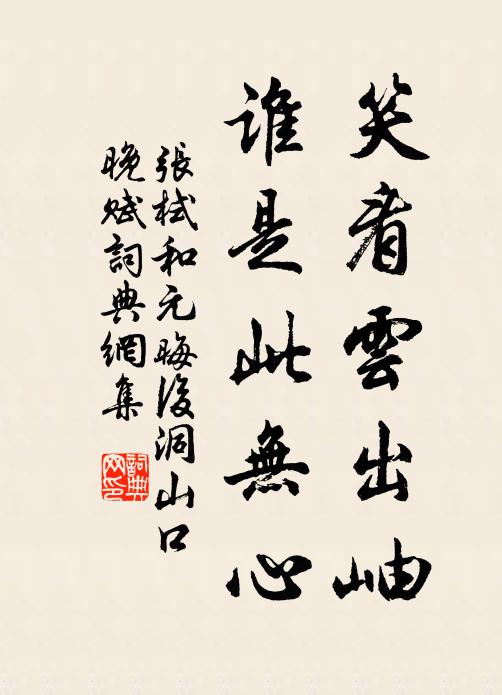 笑看雲出岫
誰是此無心
張栻和元晦後洞山口
晚賦詞典網集
詞典
网印